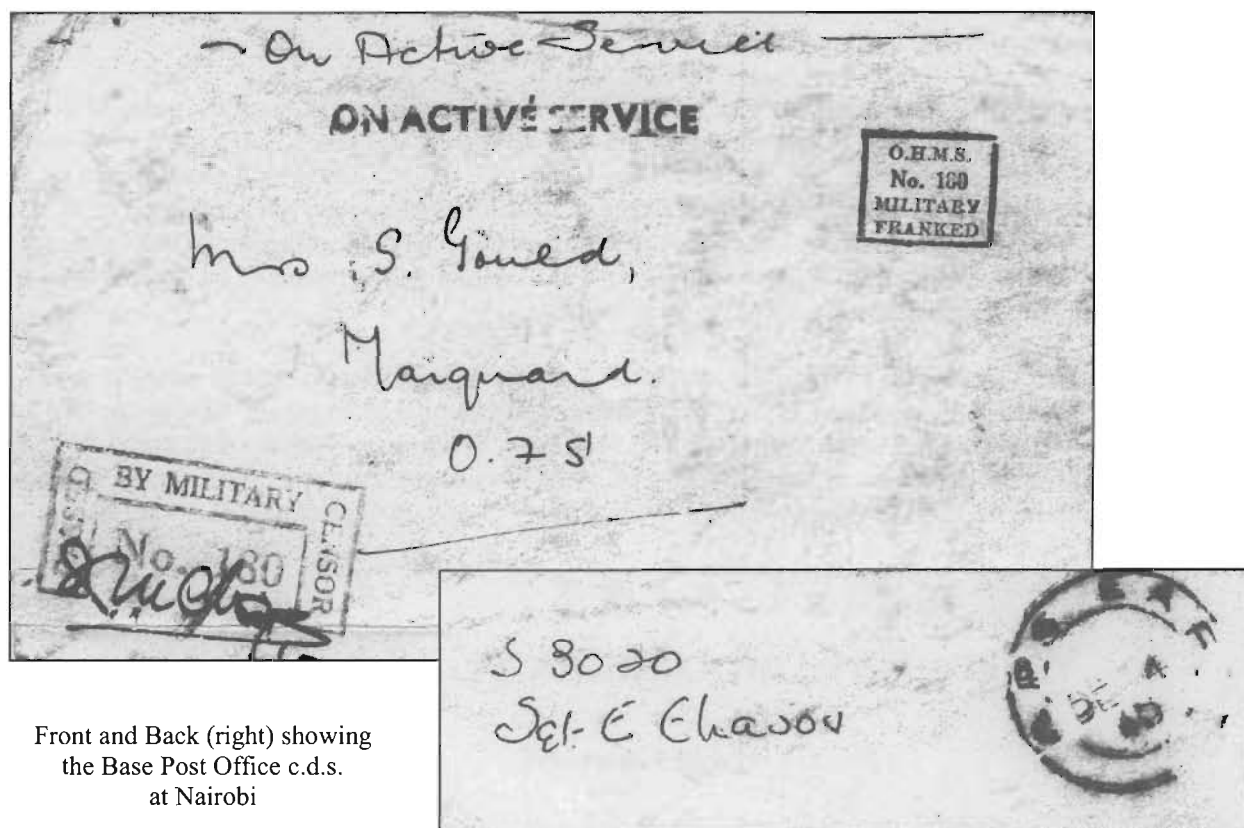 On Active Service
ON ACTIVE SERVICE
O.H.M.S.
No. 180
MILITARY
FRANKED
Mrs S. Gould,
Marquard.
O.F.S
BY MILITARY
CENSOR
No. 180
S 3020
Sgt E
E A F
DE
Front and Back (right) showing
the Base Post Office c.d.s.
at Nairobi